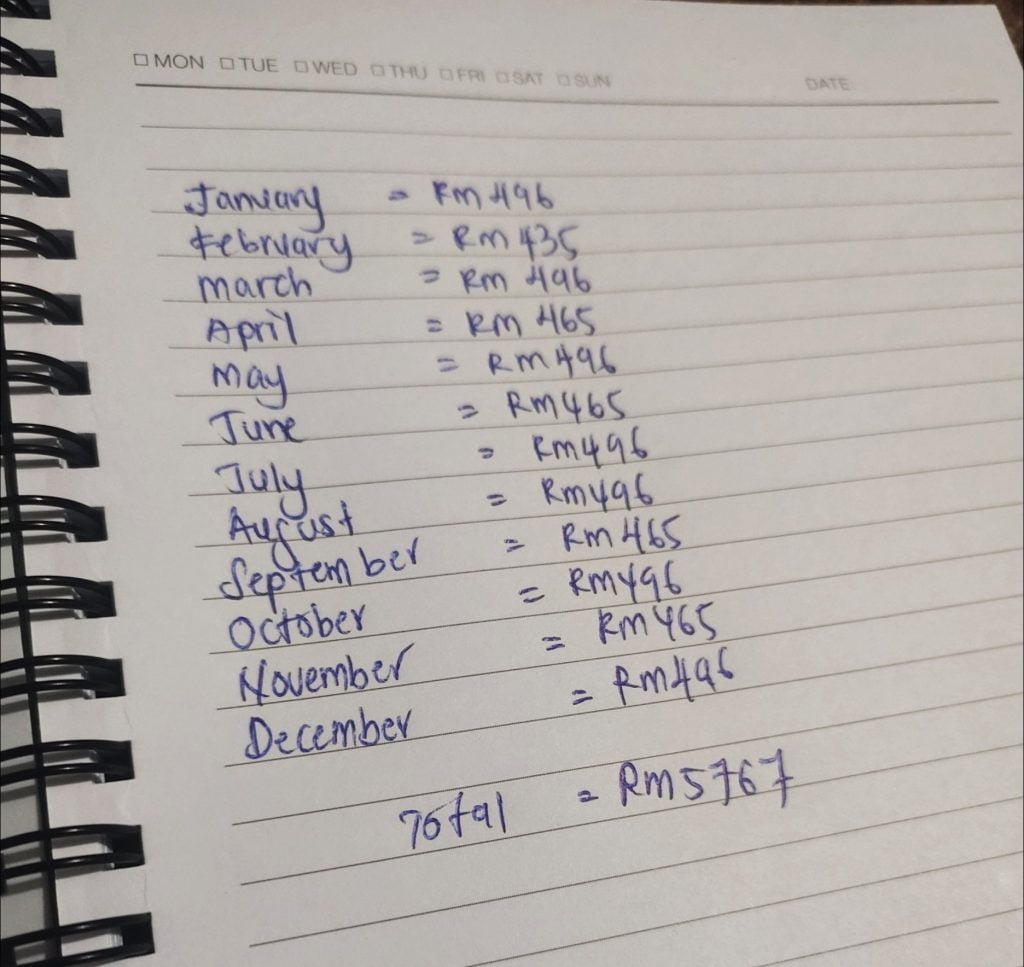 MON TUE WED THU FRI SAT SUN DATE
January = RM 496
February = RM 435
March = RM 496
April = RM 465
May = RM 496
June = RM 465
July = RM 496
August = RM 496
September = RM 465
October = RM 496
November = RM 465
December = RM 496
Total = RM 5767